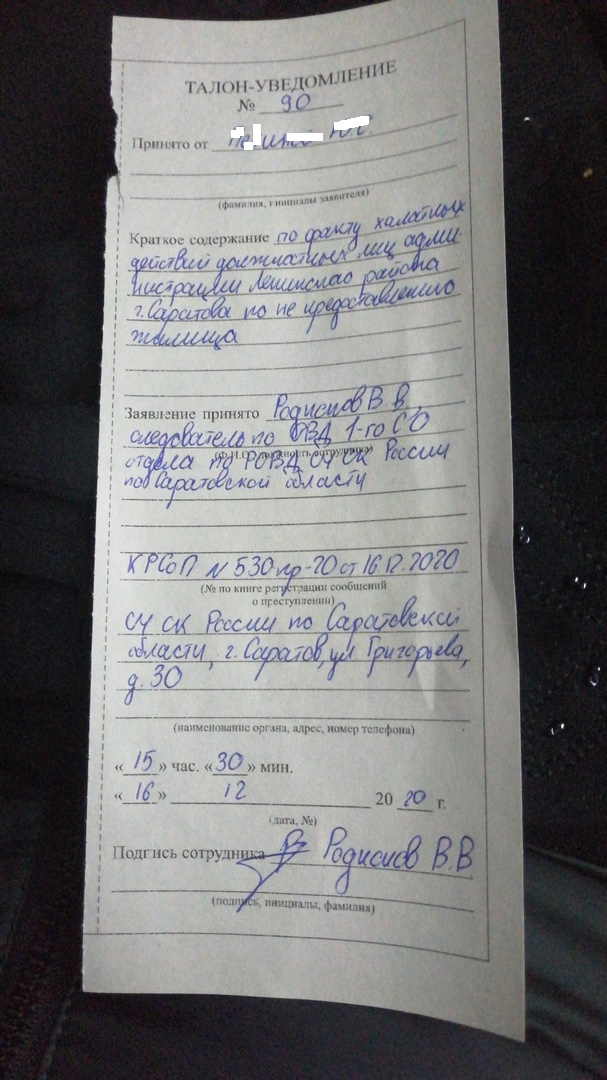 ТАЛОН-УВЕДОМЛЕНИЕ
№ 90
Принято от
(фамилия, инициалы заявителя)
Краткое содержание по факту халатных
действий должностных лиц адми-
нистрации Ленинского района
г. Саратова по не предоставлению
жилища
Заявление принято Родионов В.В.
следователь по ОВД 1-го СО
(Ф.И.О., должность сотрудника)
отдела по РОВД СУ СК России
по Саратовской области
КРСоП № 530пр-20 от 16.12.2020
(№ по книге регистрации сообщений
о преступлении)
СУ СК России по Саратовской
области, г. Саратов, ул Григорьева,
д. 30
(наименование органа, адрес, номер телефона)
« 15 » час. « 30 » мин.
« 16 » 12 20 20 г.
(дата, №)
Подпись сотрудника Родионов В.В
(подпись, инициалы, фамилия)